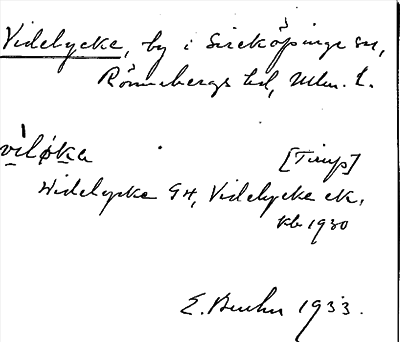 Videlycke, by i Sireköpinge sn,
Rönnebergs hd, Mlm. L.
vìløka [Tirup]
Widelycke GH, Videlycke ek.
kb 1930
E. Bruhn 1933.